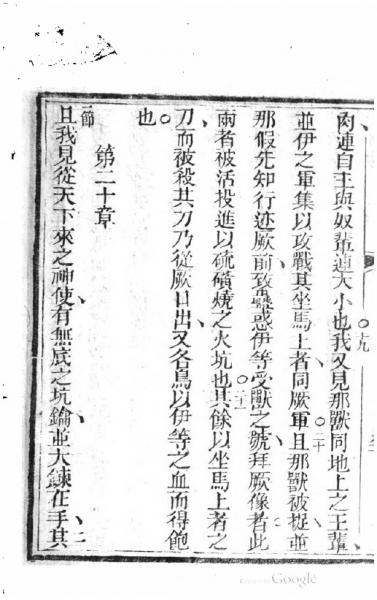 肉連自主與奴輩連大小也我又見那獸同地上之王輩
並伊之軍集以攻戰其坐馬上者同厥軍且那獸被捉並
那假先知行迹厥前致蠱惑伊等受獸之號拜厥像者此
兩者被活投進以硫磺燒之火坑也其餘以坐馬上者之
刀而被殺其刀乃從厥口出又各鳥以伊等之血而得飽
也
第二十章
一節
且我見從天下來之神使有無底之坑鑰並大鍊在手其
十九
二十
二十一
二
Google